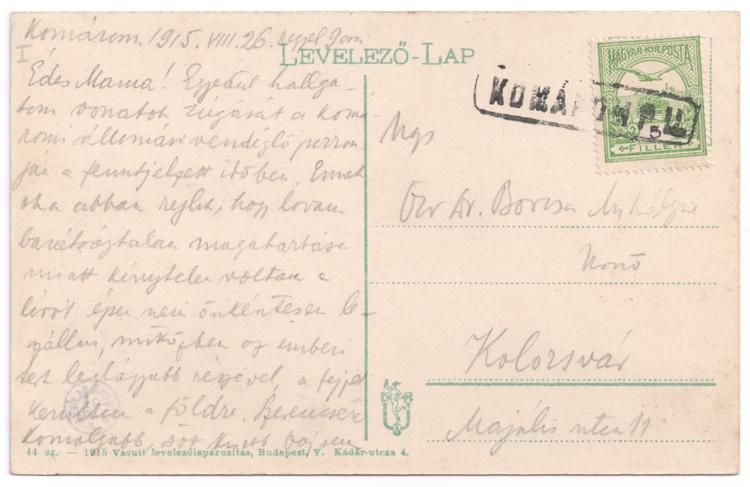 Komárom. 1915. VIII. 26. reggel
I
LEVELEZŐ-LAP
Édes Mama! Egyedül hallga-
tom vonatok zúgását a koma-
romi állomási vendéglő perron-
ján a fenntjelzett időben. Ennek
oka abban rejlik, hogy lovam
barátságtalan magatartása
miatt kénytelen voltam a
lóról épen nem önkéntesen le-
szállni, miközben az emberi
test leglágyabb részével, a fejjel
kerültem a földre. Szerencsére
komolyabb, sőt
MAGYAR KIR. POSTA
5
FILLÉR
KOMÁROM P.U.
Ngs
Özv Dr. Borcsa Mihályné
Kolozsvár
Majális utca 11
44 sz. — 1915 Vasuti levelezőlapárusitás, Budapest, V. Kádár-utcza 4.